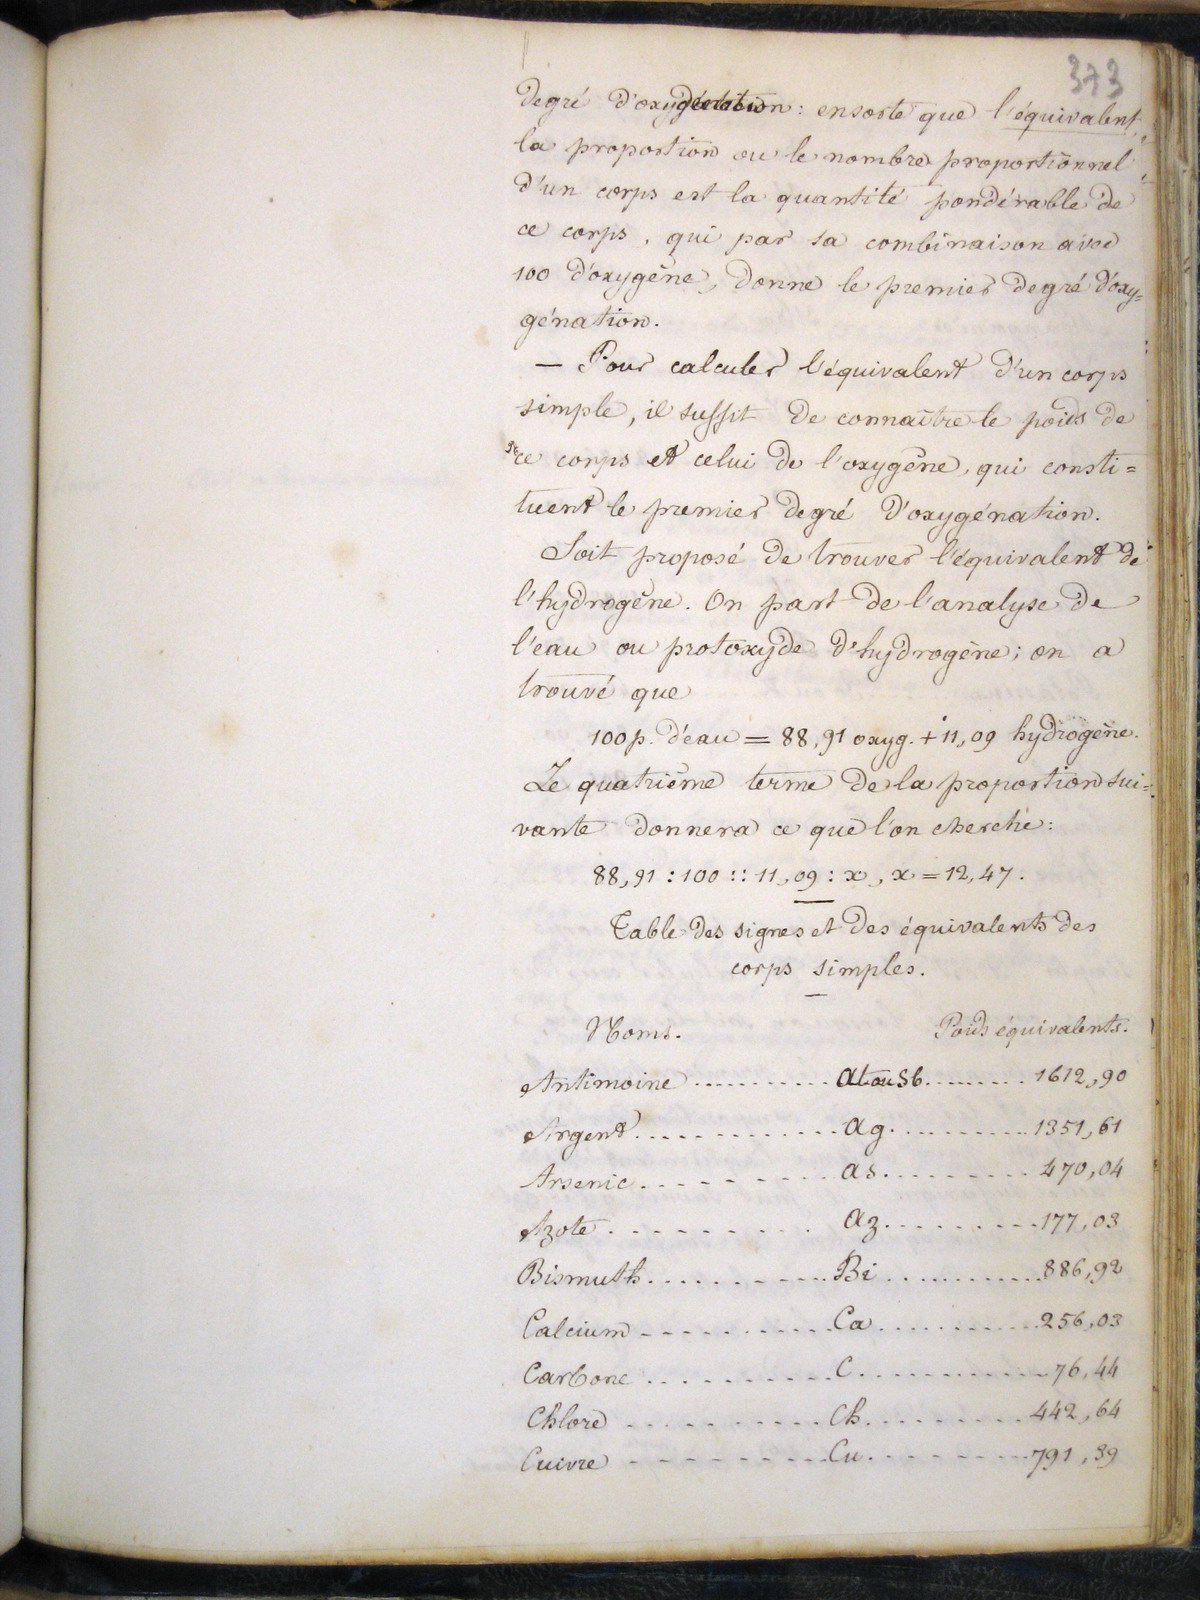 373
degré d'oxygénation : ensorte que l'équivalent,
la proportion ou le nombre proportionnel
d'un corps est la quantité pondérable de
ce corps, qui par sa combinaison avec
100 d'oxygène, donne le premier degré d'oxy=
génation.
— Pour calculer l'équivalent d'un corps
simple, il suffit de connaître le poids de
ce corps et celui de l'oxygène, qui consti=
tuent le premier degré d'oxygénation.
Soit proposé de trouver l'équivalent de
l'hydrogène. On part de l'analyse de
l'eau ou protoxyde d'hydrogène; on a
trouvé que
100 p. d'eau = 88,91 oxyg. + 11,09 hydrogène.
Le quatrième terme de la proportion sui=
vante donnera ce que l'on cherche:
88,91 : 100 :: 11,09 : x, x = 12,47.
Table des signes et des équivalents des
corps simples.
Noms. Poids équivalents.
Antimoine ........... At ou Sb. ........ 1612,90
Argent. ............ Ag. .......... 1351,61
Arsenic. ......... as. ......... 470,04
Azote. .......... az. ......... 177,03
Bismuth. .......... Bi ............ 886,92
Calcium ........... Ca. ........... 256,03
Carbone .......... C. ............ 76,44
Chlore .......... Ch. ......... 442,64
Cuivre .......... Cu. ......... 791,39